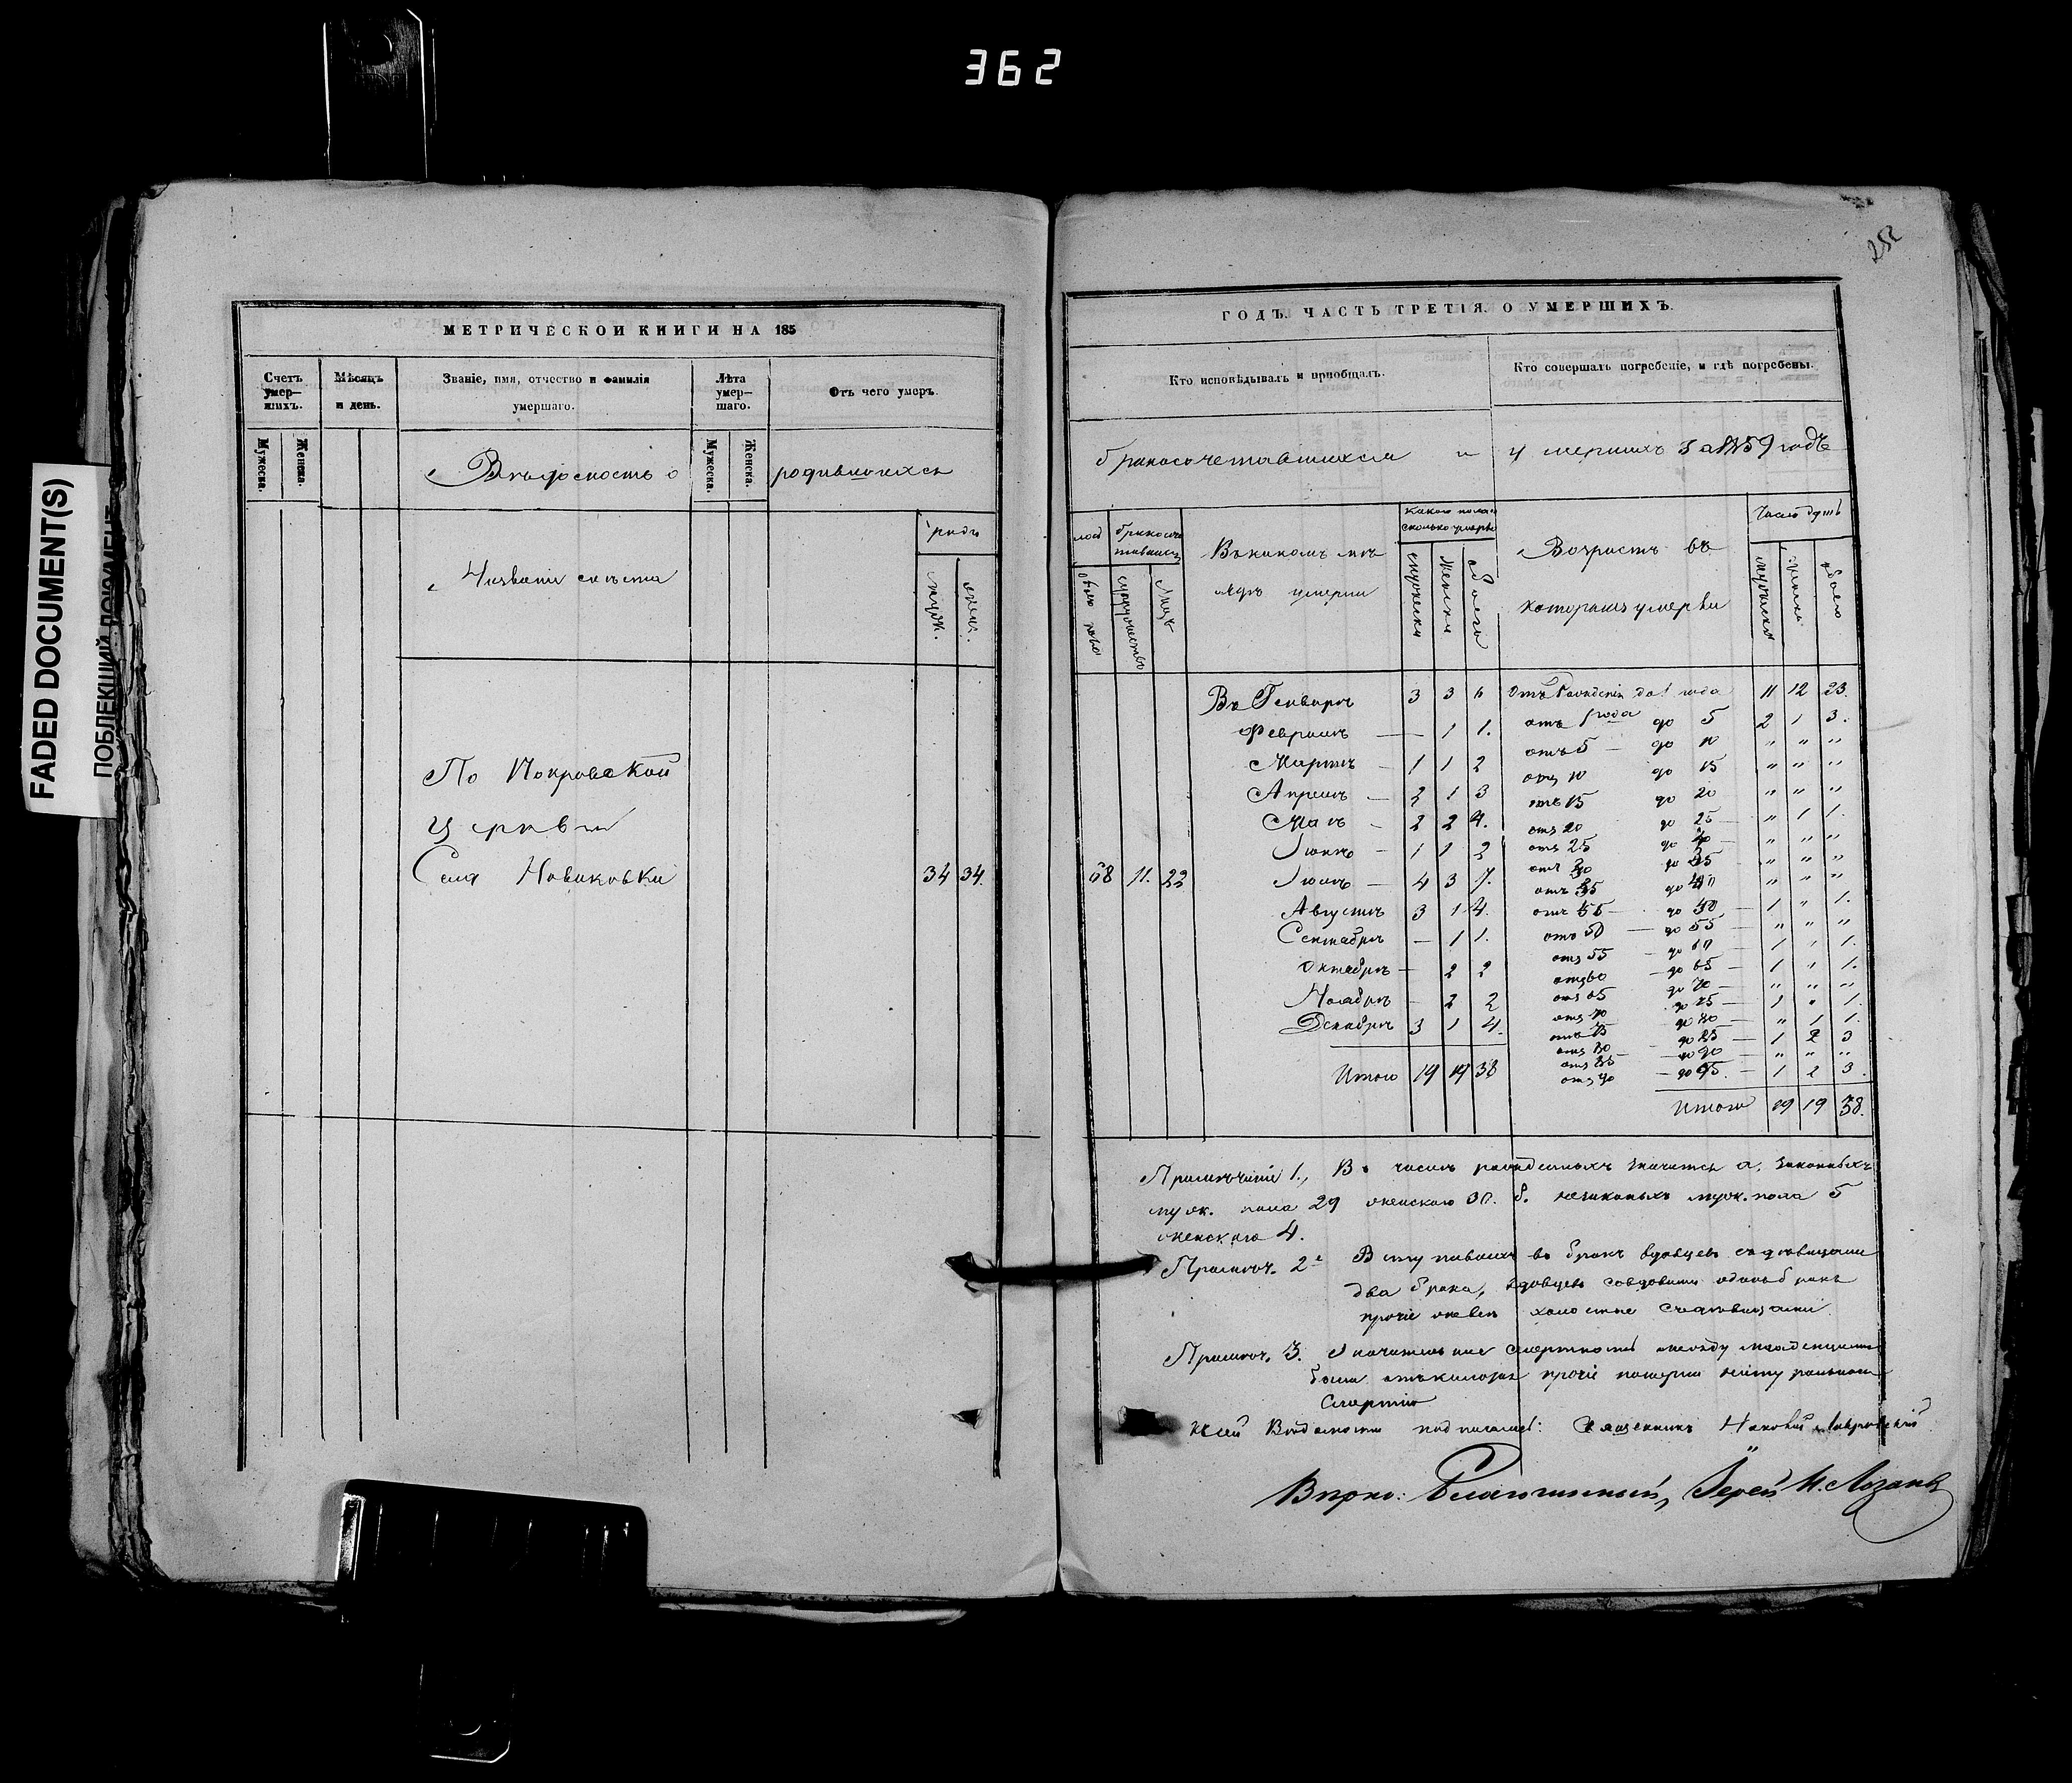 362
252
FADED DOCUMENT(S)
ПОБЛЕКШИЙ ДОКУМЕНТ
МЕТРИЧЕСКОЙ КНИГИ НА 185
Счетъ умер-шихъ.
Мѣсяцъ и день.
Званіе, имя, отчество и фамилія умершаго.
Лѣта умер-шаго.
Отъ чего умеръ.
Мужеска. Женска.
Мужеска. Женска.
Вѣдомость о родившихся
Названіе мѣста
муж. женс.
По Покровской
церкви
Села Новиковки 34 34.
ГОДЪ. ЧАСТЬ ТРЕТІЯ. О УМЕРШИХЪ.
Кто исповѣдывалъ и пріобщалъ.
Кто совершалъ погребеніе, и гдѣ погребены.
бракосочетавшихся и умершихъ за 1859 годъ
Какого пола и сколько умерло
Число душъ
Въ какомъ мѣсяцѣ умерли
Возрастъ въ которомъ умерли
супружествъ
Лицъ
мужеска
женска
обоего
68 11. 22
Въ Генварѣ 3 3 6
Февралѣ — 1 1.
Мартѣ — 1 1 2
Апрелѣ — 2 1 3
Маѣ — 2 2 4.
Іюнѣ — 1 1 2
Іюлѣ — 4 3 7.
Августѣ 3 1 4.
Сентябрѣ — 1 1.
Октябрѣ — 2 2
Ноябрѣ — 2 2
Декабрѣ 3 1 4.
Итого 19 19 38
Отъ Рожденія до 1 года 11 12 23.
отъ 1 года до 5 2 1 3.
отъ 5 — до 10 " " "
отъ 10 до 15 " " "
отъ 15 до 20 " " "
отъ 20 до 25 — " 1 1.
отъ 25 до 30 — " " "
отъ 30 до 35 " " "
отъ 35 до 40 " " "
отъ 45 — до 50 — 1 " 1.
отъ 50 — до 55 — " " "
отъ 55 — до 60 — 1 " 1.
отъ 60 — до 65 — 1 " 1.
отъ 65 до 70 — " " "
отъ 70 до 75 — 1 " 1.
отъ 75 до 80 — " 1 1.
отъ 80 до 85 — 1 2 3
отъ 85 — до 90 — " " "
отъ 90 — до 95. — 1 2 3.
Итого 19 19 38.
Примѣчаніе 1., Въ числѣ рожденныхъ значится а, законныхъ
муж. пола 29 женскаго 30. б. незаконыхъ муж. пола 5
женскаго 4.
Примѣч. 2е Вступившихъ въ бракъ вдовцевъ съ дѣвицами
два брака, вдовцевъ со вдовами одинъ бракъ
прочіе холостые съ дѣвицами.
Примѣч. 3. смертность между младенцами
была прочіе померли натуральною
смертію
Вѣдомости подписалъ: Священникъ Лавровскій
Вѣрно: Благочинный, Іерей Н. Лозановъ